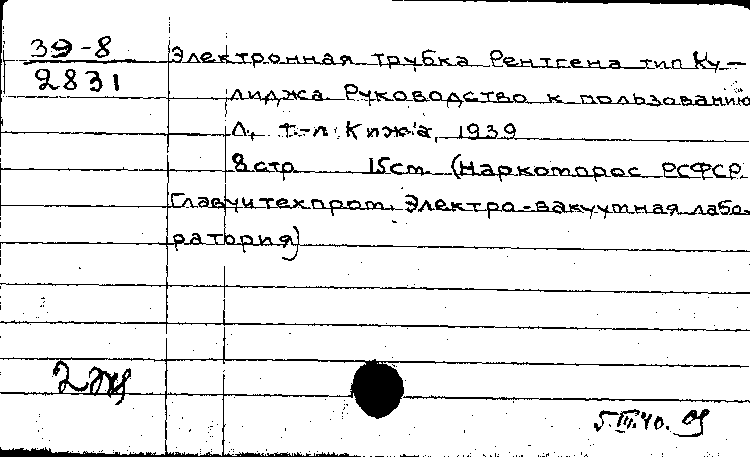 39-8
2831
Электронная трубка Рентгена тип Ку-
лиджа. Руководство к пользованию
Л., т.-л. Кижа, 1939
8 стр 15 см. (Наркомпрос РСФСР.
Главучтехпром. Электро-вакуумная лабо-
ратория)
5.III.40.